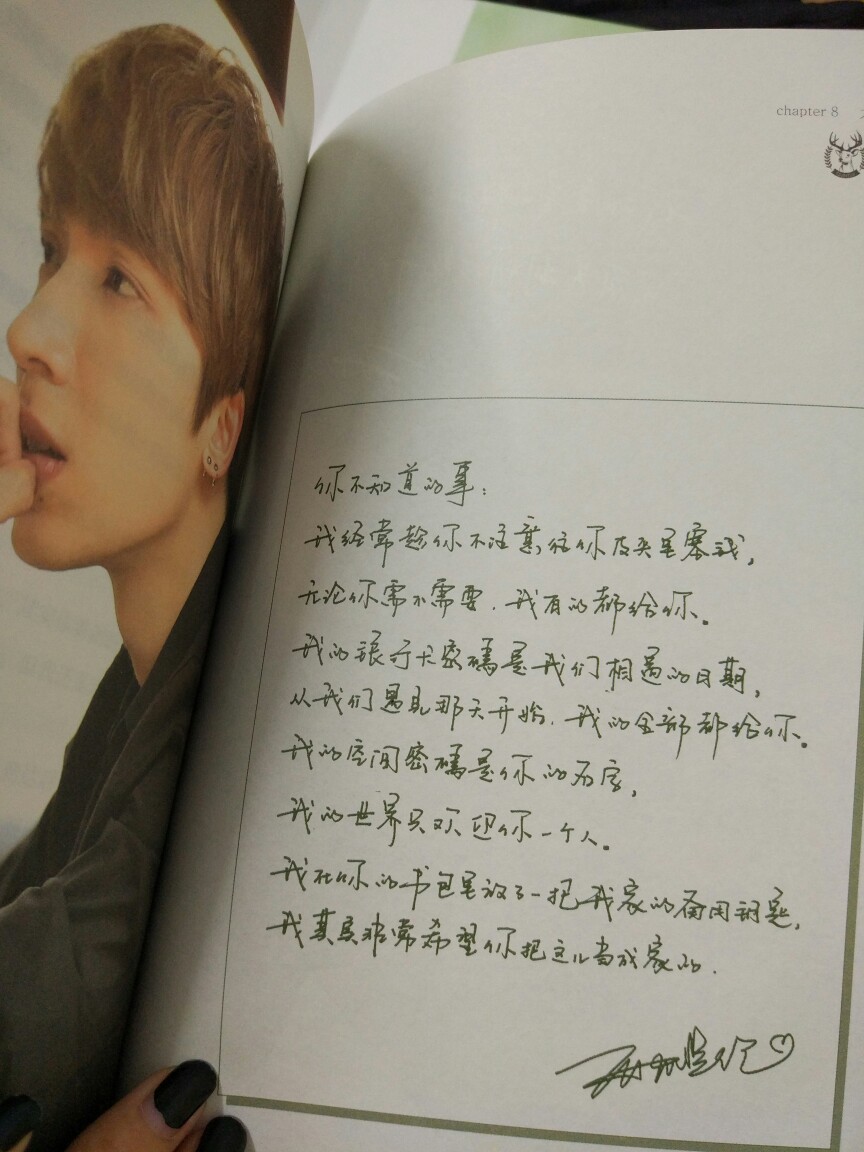 chapter 8
你不知道的事：
我经常趁你不注意往你皮夹里塞钱，
无论你需不需要，我有的都给你。
我的银行卡密码是我们相遇的日期，
从我们遇见那天开始，我的全部都给你。
我的空间密码是你的名字，
我的世界只欢迎你一个人。
我在你的书包里放了一把我家的备用钥匙，
我其实非常希望你把这儿当成家的.